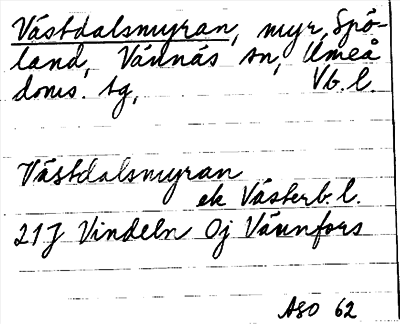 Västdalsmyran, myr, Spö-
land, Vännäs sn, Umeå
doms. tg, Vb. l
Västdalsmyran
ek Västerb. l.
21J Vindeln 0j Vännfors
ASO 62